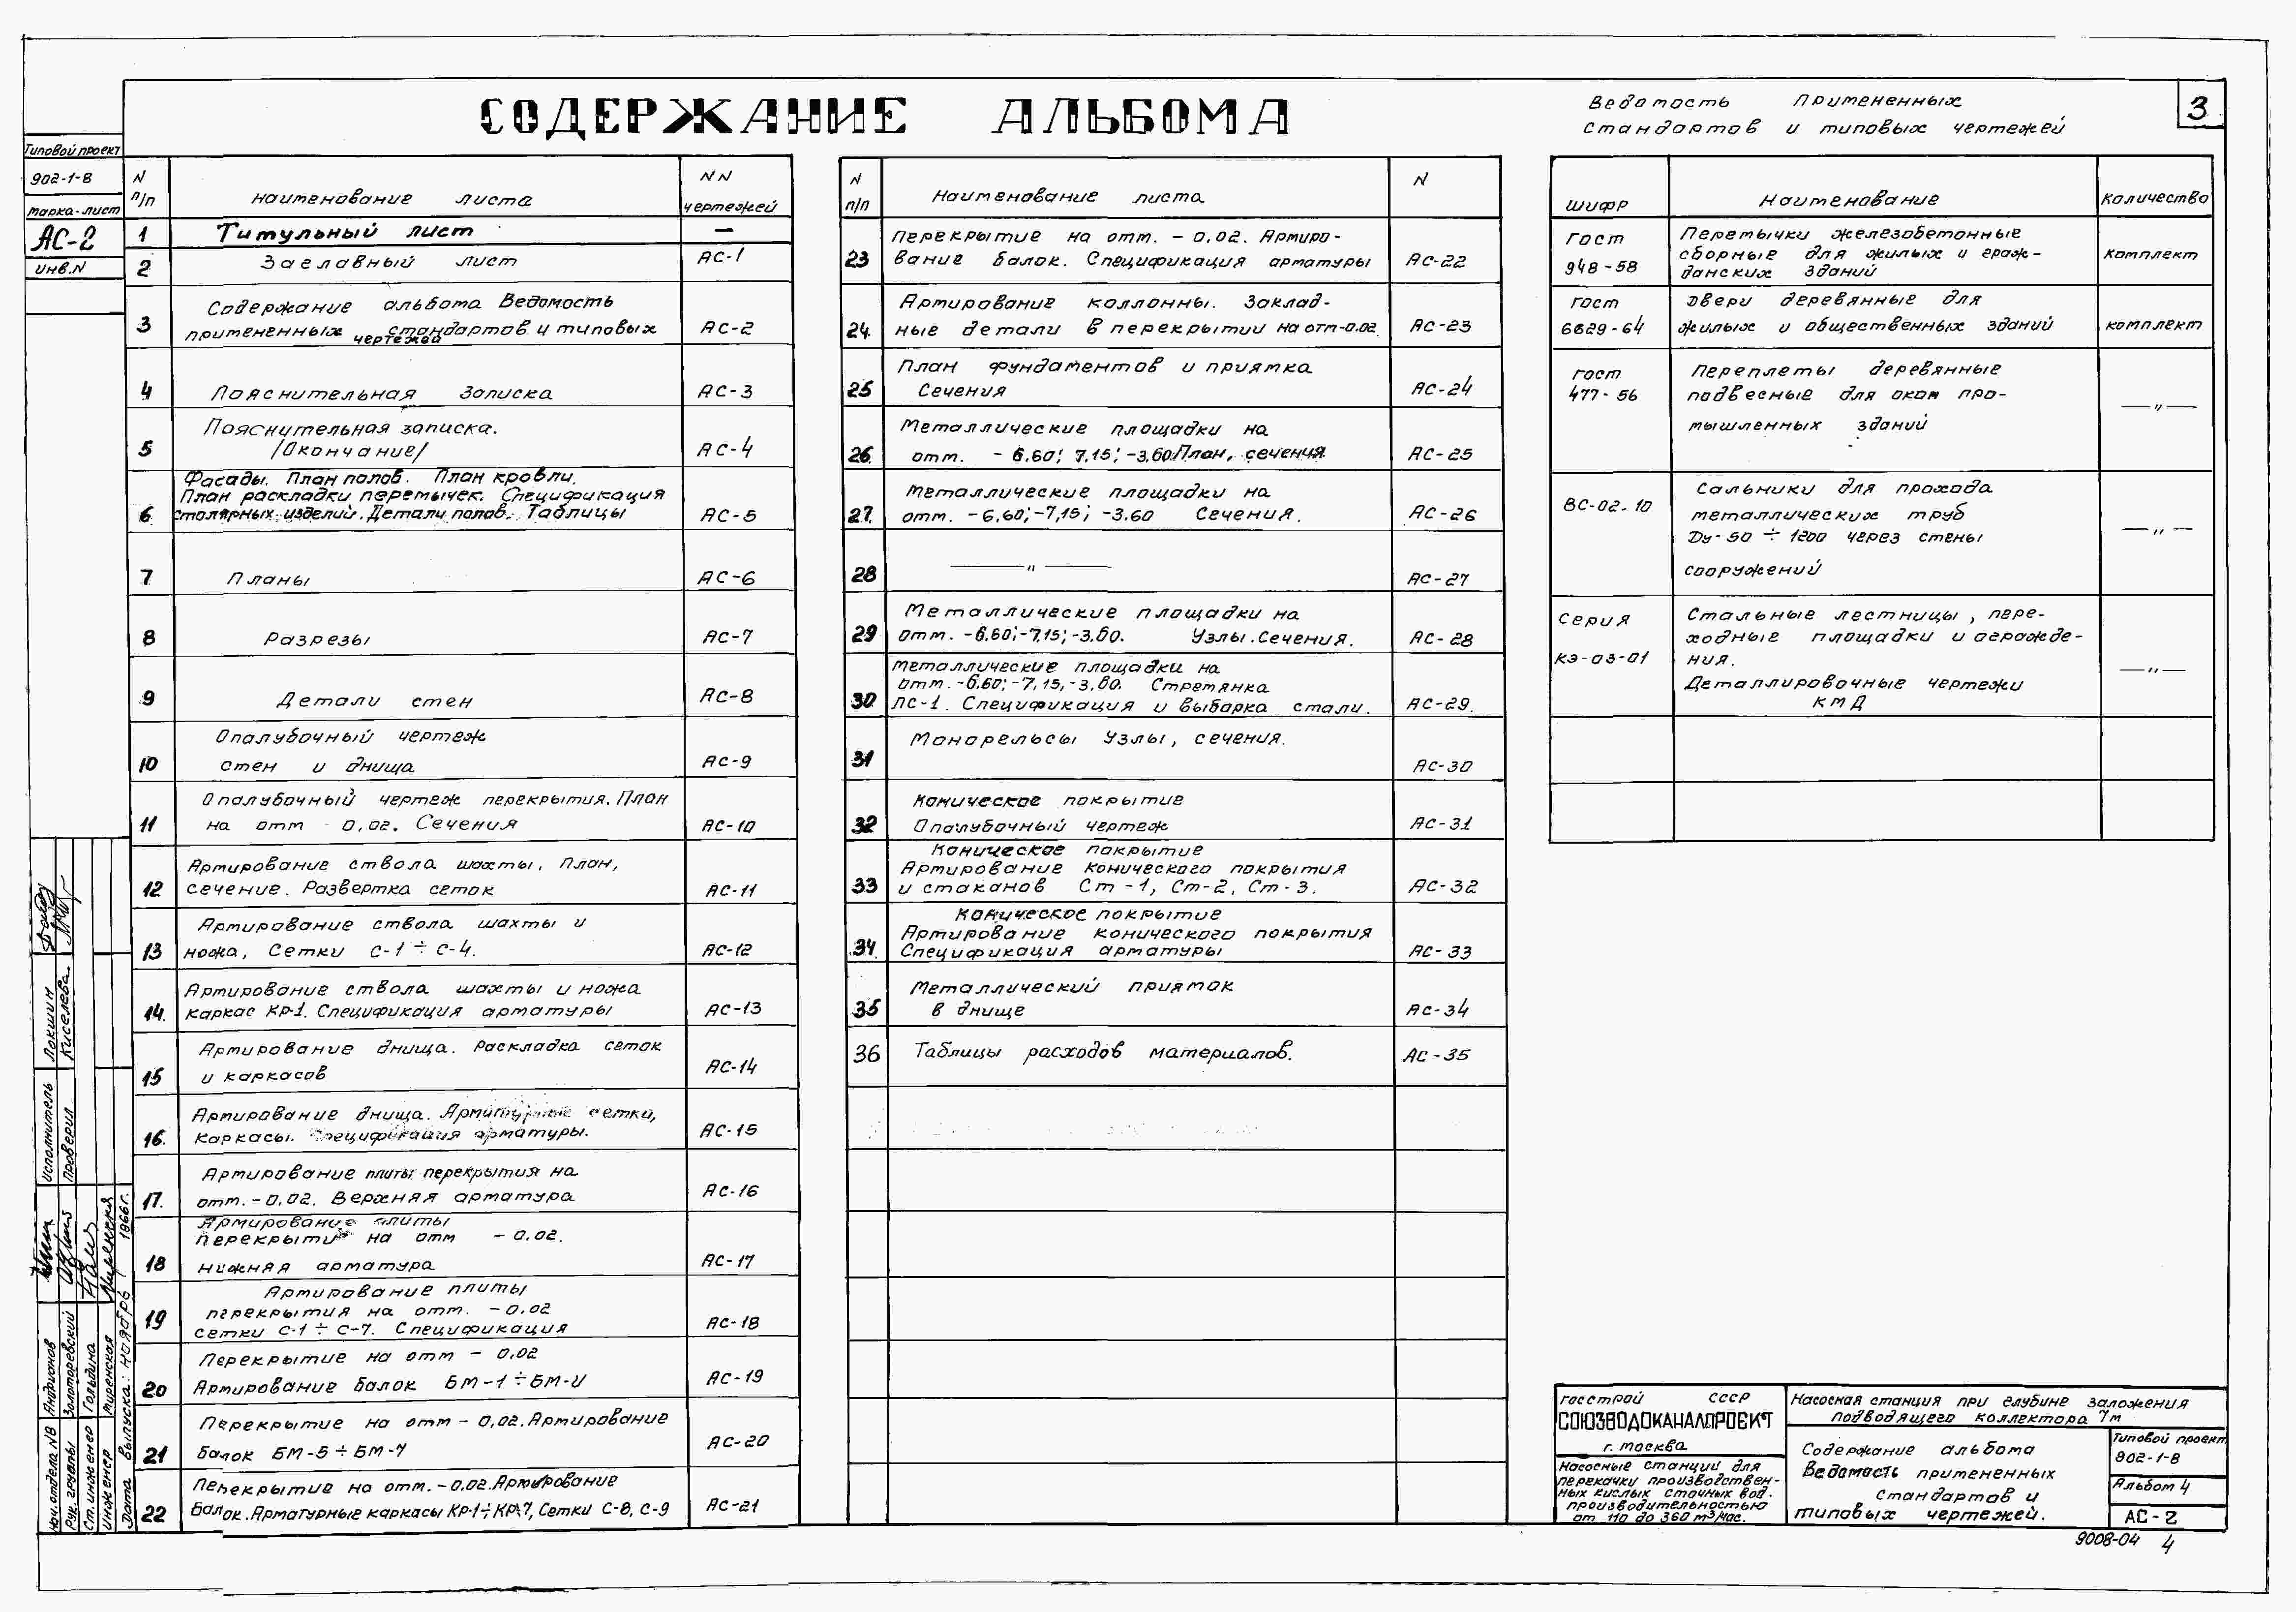 СОДЕРЖАНИЕ АЛЬБОМА
3
Типовой проект
902-1-8
марка-лист
АС-2
инв.N
N п/п
наименование листа
NN чертежей
1 Титульный лист —
2 Заглавный лист АС-1
Содержание альбома Ведомость
3 примененных стандартов и типовых АС-2
чертежей
4 Пояснительная записка АС-3
Пояснительная записка.
5 /Окончание/ АС-4
Фасады. План полов. План кровли.
План раскладки перемычек. Спецификация
6 столярных изделий. Детали полов. Таблицы АС-5
7 Планы АС-6
8 Разрезы АС-7
9 Детали стен АС-8
Опалубочный чертеж
10 стен и днища АС-9
Опалубочный чертеж перекрытия. План
11 на отм - 0,02. Сечения АС-10
Армирование ствола шахты, план,
12 сечение. Развертка сеток АС-11
Армирование ствола шахты и
13 ножа, Сетки С-1 ÷ С-4. АС-12
Армирование ствола шахты и ножа
14. каркас КР-1. Спецификация арматуры АС-13
Армирование днища. Раскладка сеток
15 и каркасов АС-14
Армирование днища. сетки,
16. Каркасы. Спецификация арматуры. АС-15
Армирование плиты перекрытия на
17. отм. - 0,02. Верхняя арматура АС-16
Армирование плиты
перекрытия на отм - 0.02.
18 нижняя арматура АС-17
Армирование плиты
перекрытия на отм. - 0.02
19 сетки С-1 ÷ С-7. Спецификация АС-18
Перекрытие на отм - 0,02
20 Армирование балок БМ-1÷БМ-4 АС-19
Перекрытие на отм - 0,02. Армирование
21 балок БМ-5÷БМ-7 АС-20
Перекрытие на отм. - 0.02. Армирование
22 балок. Арматурные каркасы КР-1÷КР-7, Сетки С-8, С-9 АС-21
N п/п
Наименование листа
N
Перекрытие на отм. - 0,02. Армиро-
23 вание балок. Спецификация арматуры АС-22
Армирование коллонны. Заклад-
24. ные детали в перекрытии на отм-0.02 АС-23
План фундаментов и приямка
25 Сечения АС-24
Металлические площадки на
26. отм. - 6.60; 7.15; -3.60. План, сечения АС-25
Металлические площадки на
27. отм. - 6,60; -7,15; -3.60 Сечения. АС-26
28 —— " —— АС-27
Металлические площадки на
29 отм. -6.60; -7.15; -3.60. Узлы. Сечения. АС-28
металлические площадки на
отм. -6.60; -7,15, -3,60. Стремянка
30 ЛС-1. Спецификация и выборка стали. АС-29.
31 Монорельсы Узлы, сечения. АС-30
Коническое покрытие
32 Опалубочный чертеж АС-31
Коническое покрытие
Армирование конического покрытия
33 и стаканов Ст-1, Ст-2, Ст-3. АС-32
Коническое покрытие
Армирование конического покрытия
34. Спецификация арматуры АС-33
Металлический приямок
35 в днище АС-34
36 Таблицы расходов материалов. АС-35
Ведомость примененных
стандартов и типовых чертежей
шифр Наименование количество
гост 948-58
Перемычки железобетонные
сборные для жилых и граж-
данских зданий
комплект
гост 6629-64
двери деревянные для
жилых и общественных зданий
комплект
гост 477-56
переплеты деревянные
подвесные для окон про-
мышленных зданий
— " —
ВС-02-10
Сальники для прохода
металлических труб
Ду-50 ÷ 1200 через стены
сооружений
— " —
Серия КЭ-03-01
Стальные лестницы, пере-
ходные площадки и огражде-
ния.
Деталлировочные чертежи
КМД
— " —
исполнитель Локшин
проверил Киселева
нач. отдела NВ Андрианов
рук. группы Золоторевский
Ст. инженер Гольдина
инженер Миренская
Дата выпуска: ноябрь 1966г.
госстрой СССР
СОЮЗВОДОКАНАЛПРОЕКТ
г. москва
Насосные станции для
перекачки производствен-
ных кислых сточных вод.
производительностью
от 110 до 360 м³/час.
Насосная станция при глубине заложения
подводящего коллектора 7м
Содержание альбома
Ведомость примененных
стандартов и
типовых чертежей.
Типовой проект
902-1-8
Альбом 4
АС-2
9008-04 4